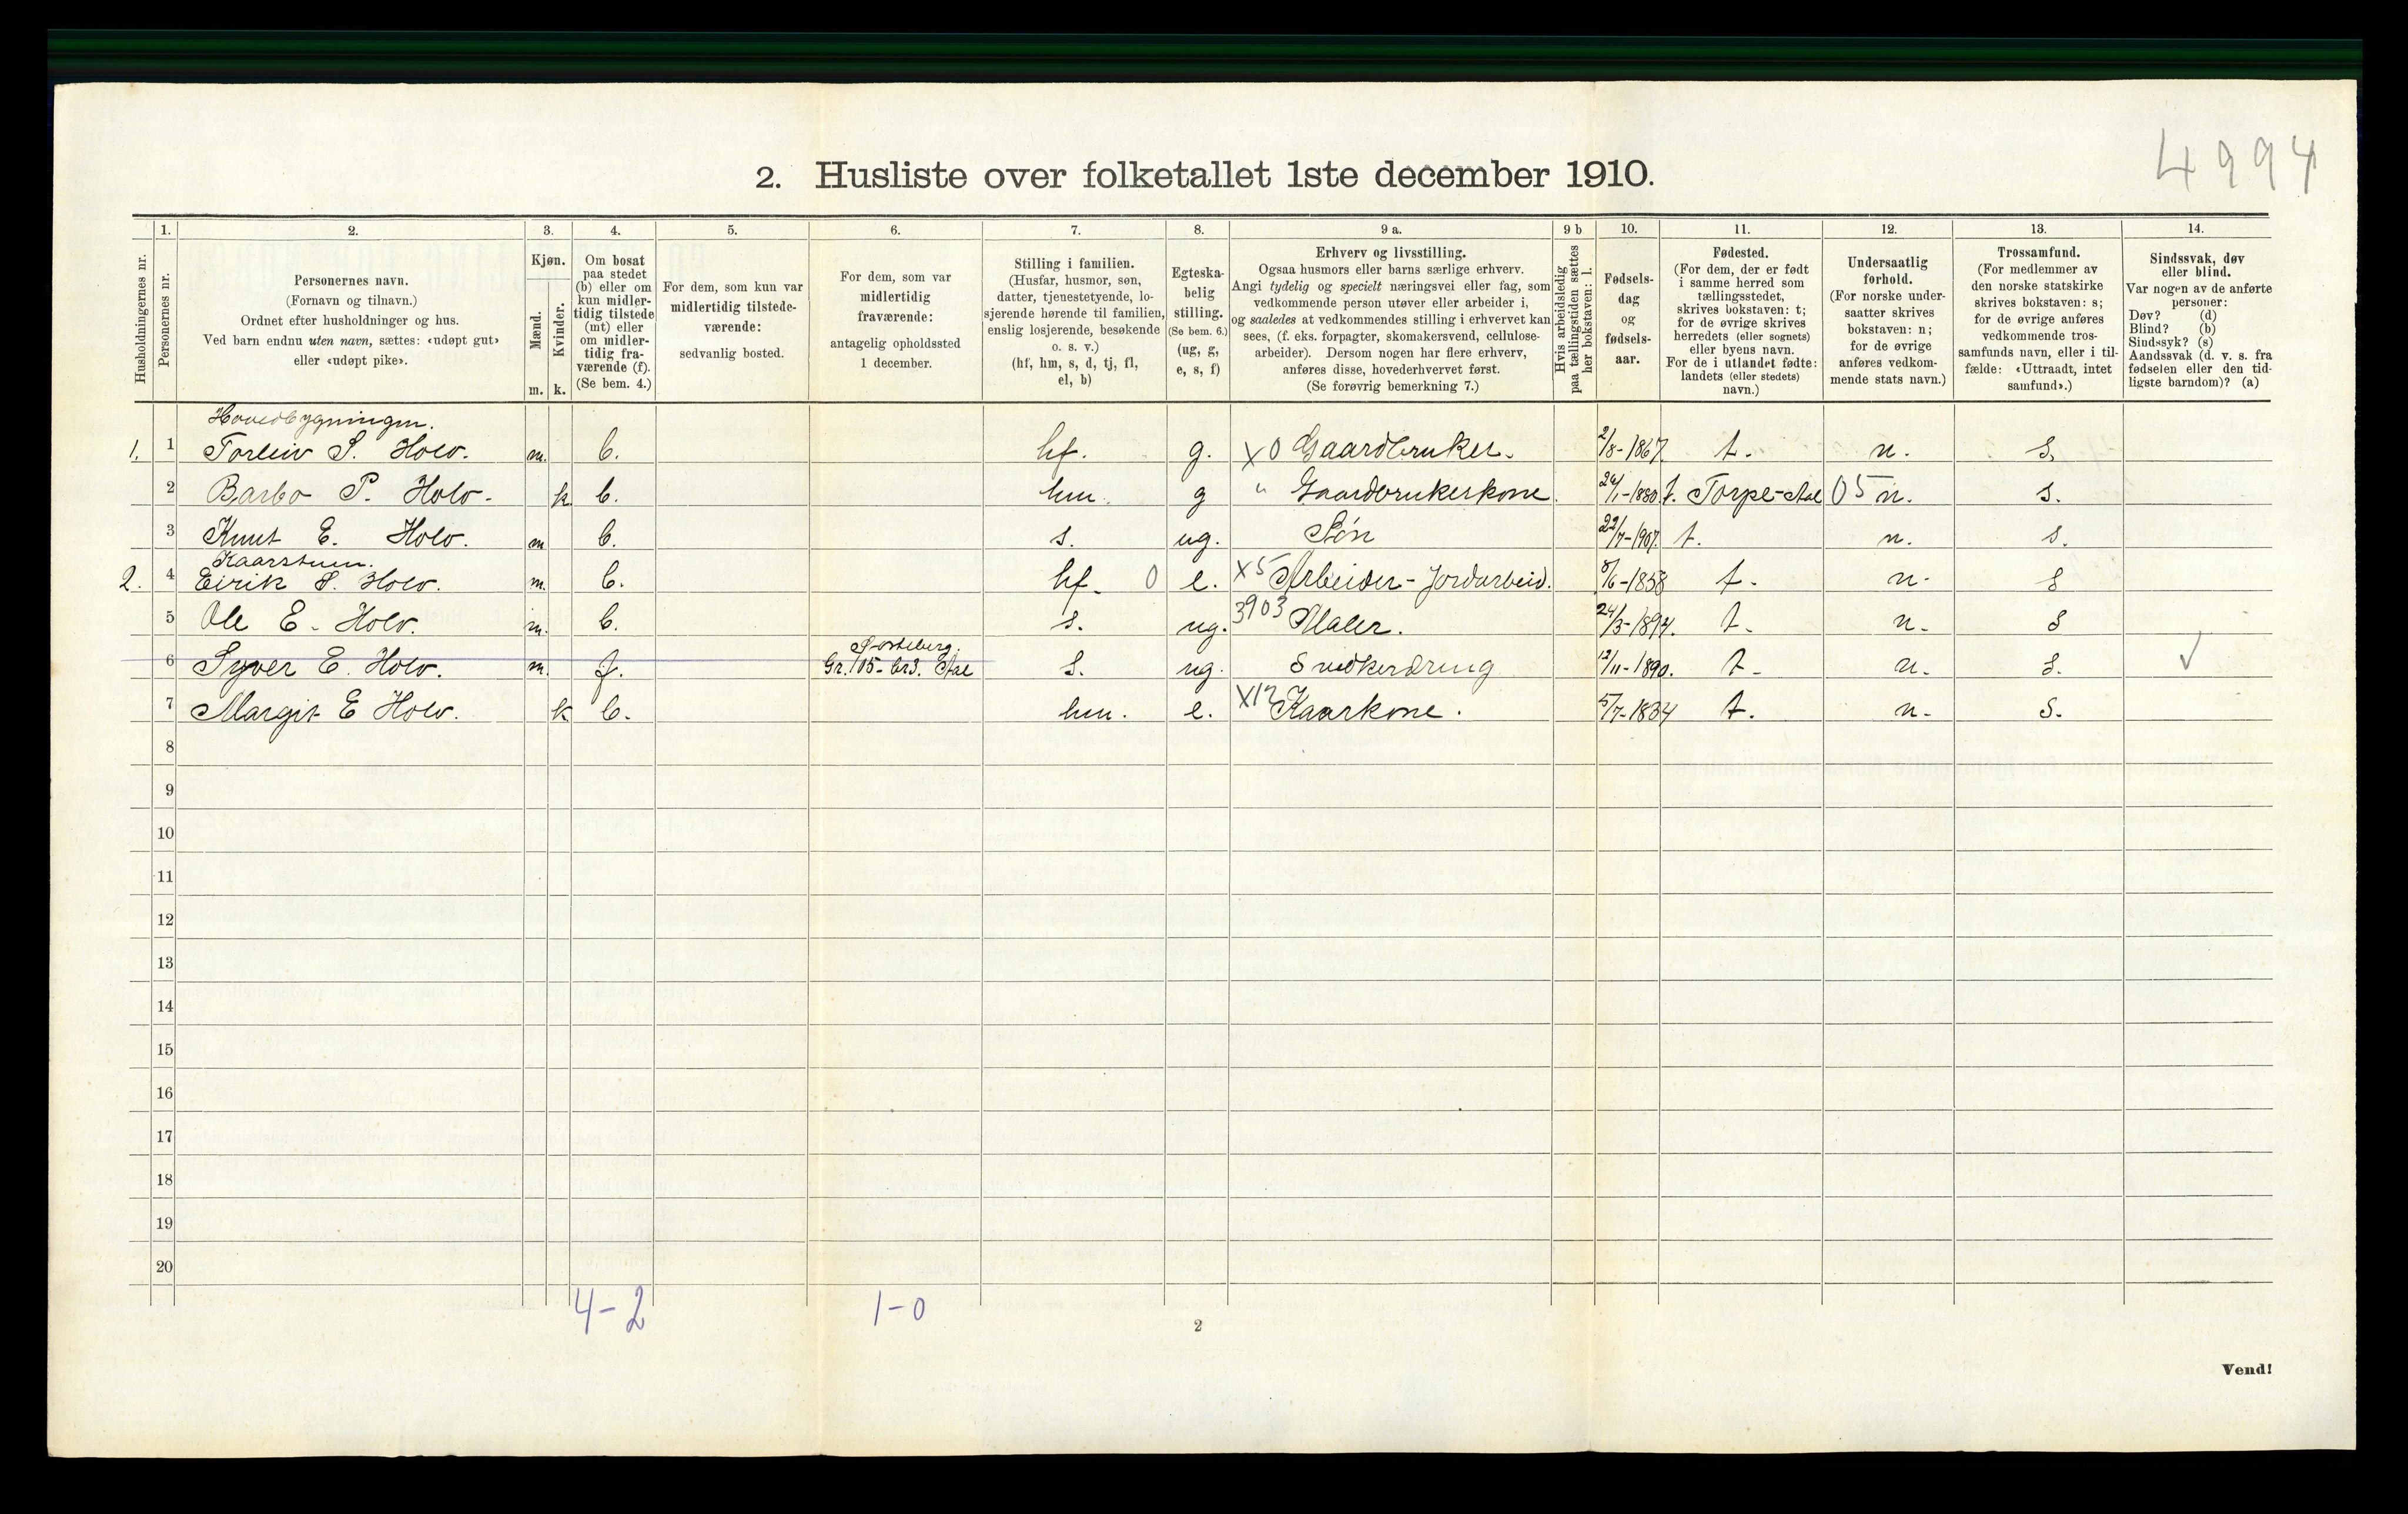 4994
2. Husliste over folketallet 1ste december 1910.
Husholdningernes nr.
1.
Personernes nr.
2.
Personernes navn.
(Fornavn og tilnavn.)
Ordnet efter husholdninger og hus.
Ved barn endnu uten navn, sættes: «udøpt gut»
eller «udøpt pike».
3.
Kjøn.
Mænd.
Kvinder.
m. k.
4.
Om bosat
paa stedet
(b) eller om
kun midler-
tidig tilstede
(mt) eller
om midler-
tidig fra-
værende (f).
(Se bem. 4.)
5.
For dem, som kun var
midlertidig tilstede-
værende:
sedvanlig bosted.
6.
For dem, som var
midlertidig
fraværende:
antagelig opholdssted
1 december.
7.
Stilling i familien.
(Husfar, husmor, søn,
datter, tjenestetyende, lo-
sjerende hørende til familien,
enslig losjerende, besøkende
o. s. v.)
(hf, hm, s, d, tj, fl,
el, b)
8.
Egteska-
belig
stilling.
(Se bem. 6.)
(ug, g,
e, s, f)
9 a.
Erhverv og livsstilling.
Ogsaa husmors eller barns særlige erhverv.
Angi tydelig og specielt næringsvei eller fag, som
vedkommende person utøver eller arbeider i,
og saaledes at vedkommendes stilling i erhvervet kan
sees, (f. eks. forpagter, skomakersvend, cellulose-
arbeider). Dersom nogen har flere erhverv,
anføres disse, hovederhvervet først.
(Se forøvrig bemerkning 7.)
9 b
Hvis arbeidsledig
paa tællingstiden sættes
her bokstaven: l.
10.
Fødsels-
dag
og
fødsels-
aar.
11.
Fødested.
(For dem, der er født
i samme herred som
tællingsstedet,
skrives bokstaven: t;
for de øvrige skrives
herredets (eller sognets)
eller byens navn.
For de i utlandet fødte:
landets (eller stedets)
navn.)
12.
Undersaatlig
forhold.
(For norske under-
saatter skrives
bokstaven: n;
for de øvrige
anføres vedkom-
mende stats navn.)
13.
Trossamfund.
(For medlemmer av
den norske statskirke
skrives bokstaven: s;
for de øvrige anføres
vedkommende tros-
samfunds navn, eller i til-
fælde: «Uttraadt, intet
samfund».)
14.
Sindssvak, døv
eller blind.
Var nogen av de anførte
personer:
Døv? (d)
Blind? (b)
Sindssyk? (s)
Aandssvak (d. v. s. fra
fødselen eller den tid-
ligste barndom)? (a)
Hovedbygningen.
1. 1 Torleiv S. Holv. m. b. hf. g. X0 Gaardbruker. 2/8-1867. t. n. s.
2 Barbo P. Holv. k b. hm. g " Gaardbrukerkone. 24/1-1880 t. Torpe-Aal 05 n. s.
3 Knut E. Holv. m b. s. ug. Søn 22/7-1907. t. n. s.
Kaarstuen.
2. 4 Eirik S. Holv. m. b. hf. 0 e. X5 Arbeider-Jordarbeid. 8/6-1858 t. n. s
5 Ole E. Holv. m. b. s. ug. 3903 Maler. 24/3-1894. t. n. s
6 Syver E. Holv. m. f. Gr. 105-br3. Aal s. ug. Snedkerdreng 12/11-1890. t. n. s. √
7 Margit E Holv. k b. hm. e. X12 Kaarkone. 5/7-1834 t. n. s.
8
9
10
11
12
13
14
15
16
17
18
19
20
4-2 1-0
2
Vend!